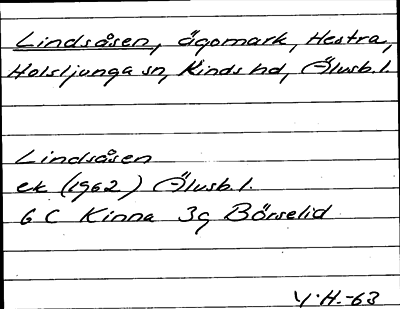 Lindsåsen, ägomark, Hestra,
Holsljunga sn, Kinds hd, Älvsb. l.
Lindsåsen
ek (1962) Älvsb. l.
6 C Kinna 3g Börselid
Y.H.-63